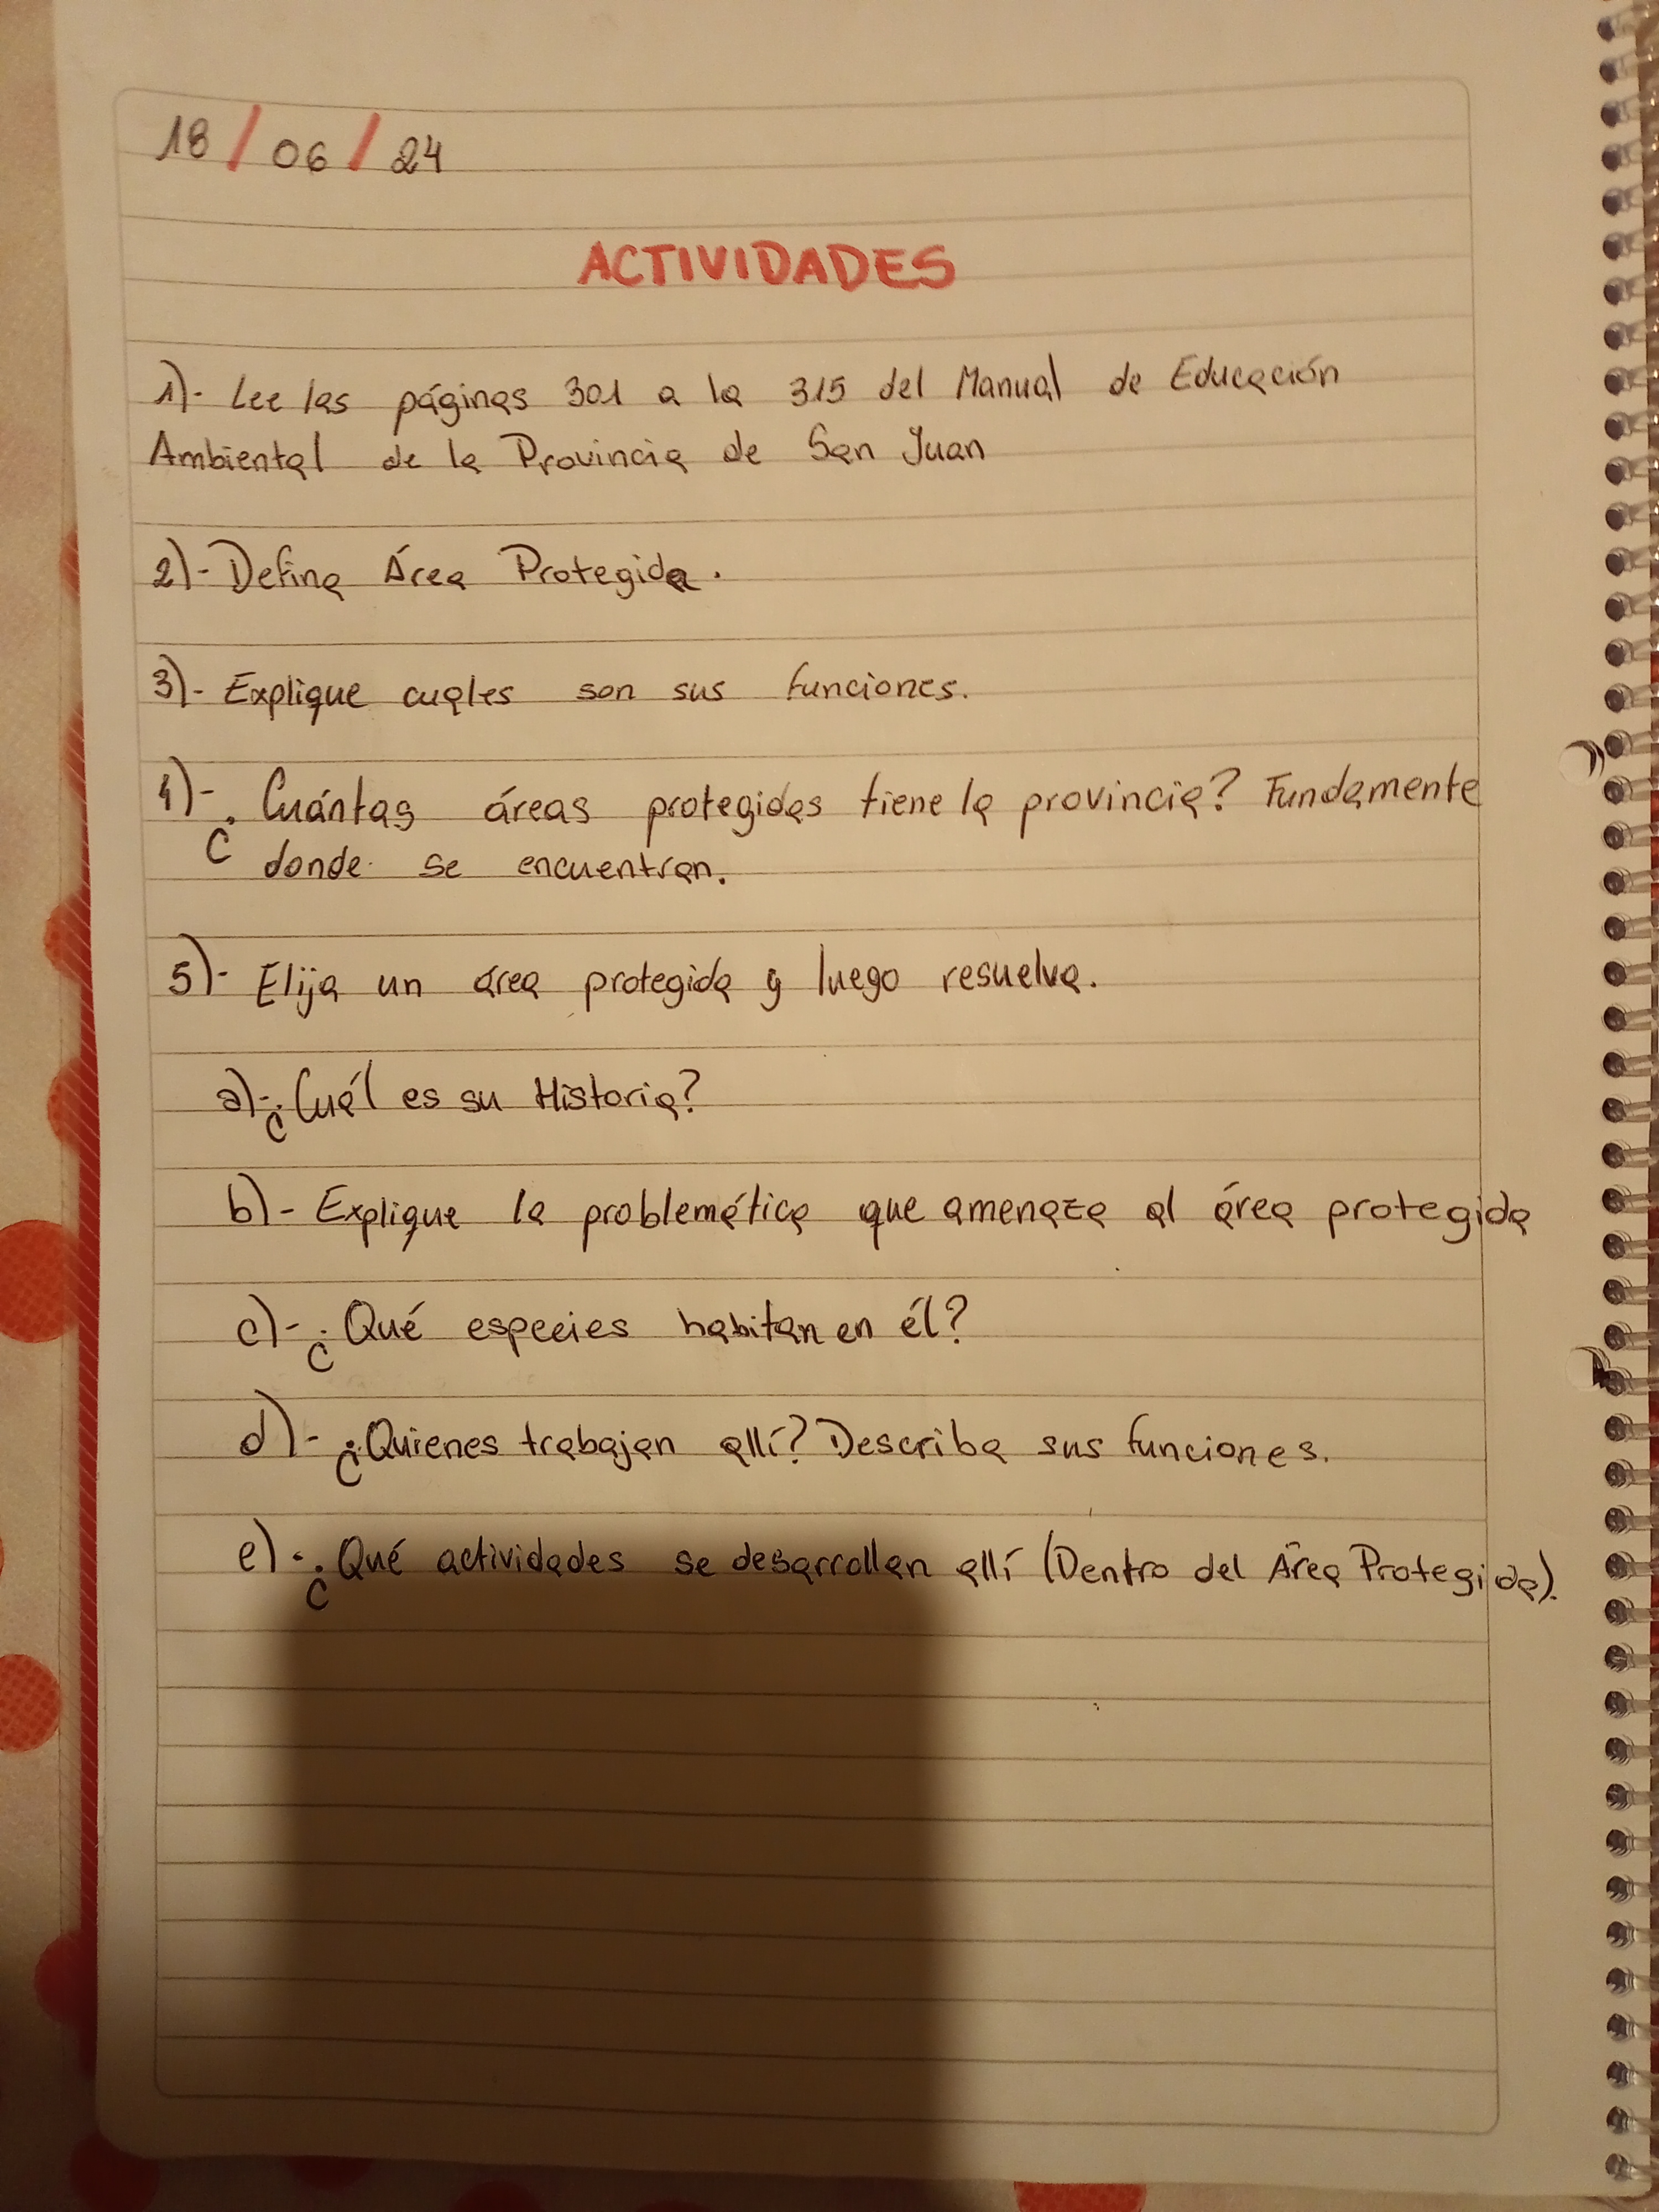 18/06/24
ACTIVIDADES
1)- Lee las páginas 301 a la 315 del Manual de Educación
Ambiental de la Provincia de San Juan
2)- Defina Área Protegida.
3)- Explique cuales son sus funciones.
4)- ¿Cuántas áreas protegidas tiene la provincia? Fundamente
donde se encuentran.
5)- Elija un área protegida y luego resuelva.
a)- ¿Cuál es su Historia?
b)- Explique la problemática que amenaza al área protegida
c)- ¿Qué especies habitan en él?
d)- ¿Quienes trabajan allí? Describa sus funciones.
e)- ¿Qué actividades se desarrollan allí (Dentro del Área Protegida).